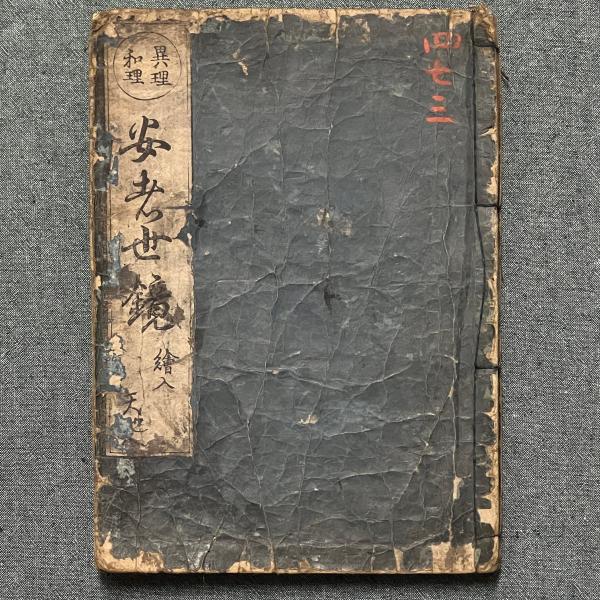 四七三
異理
和理
安老世鏡
繪入
天地